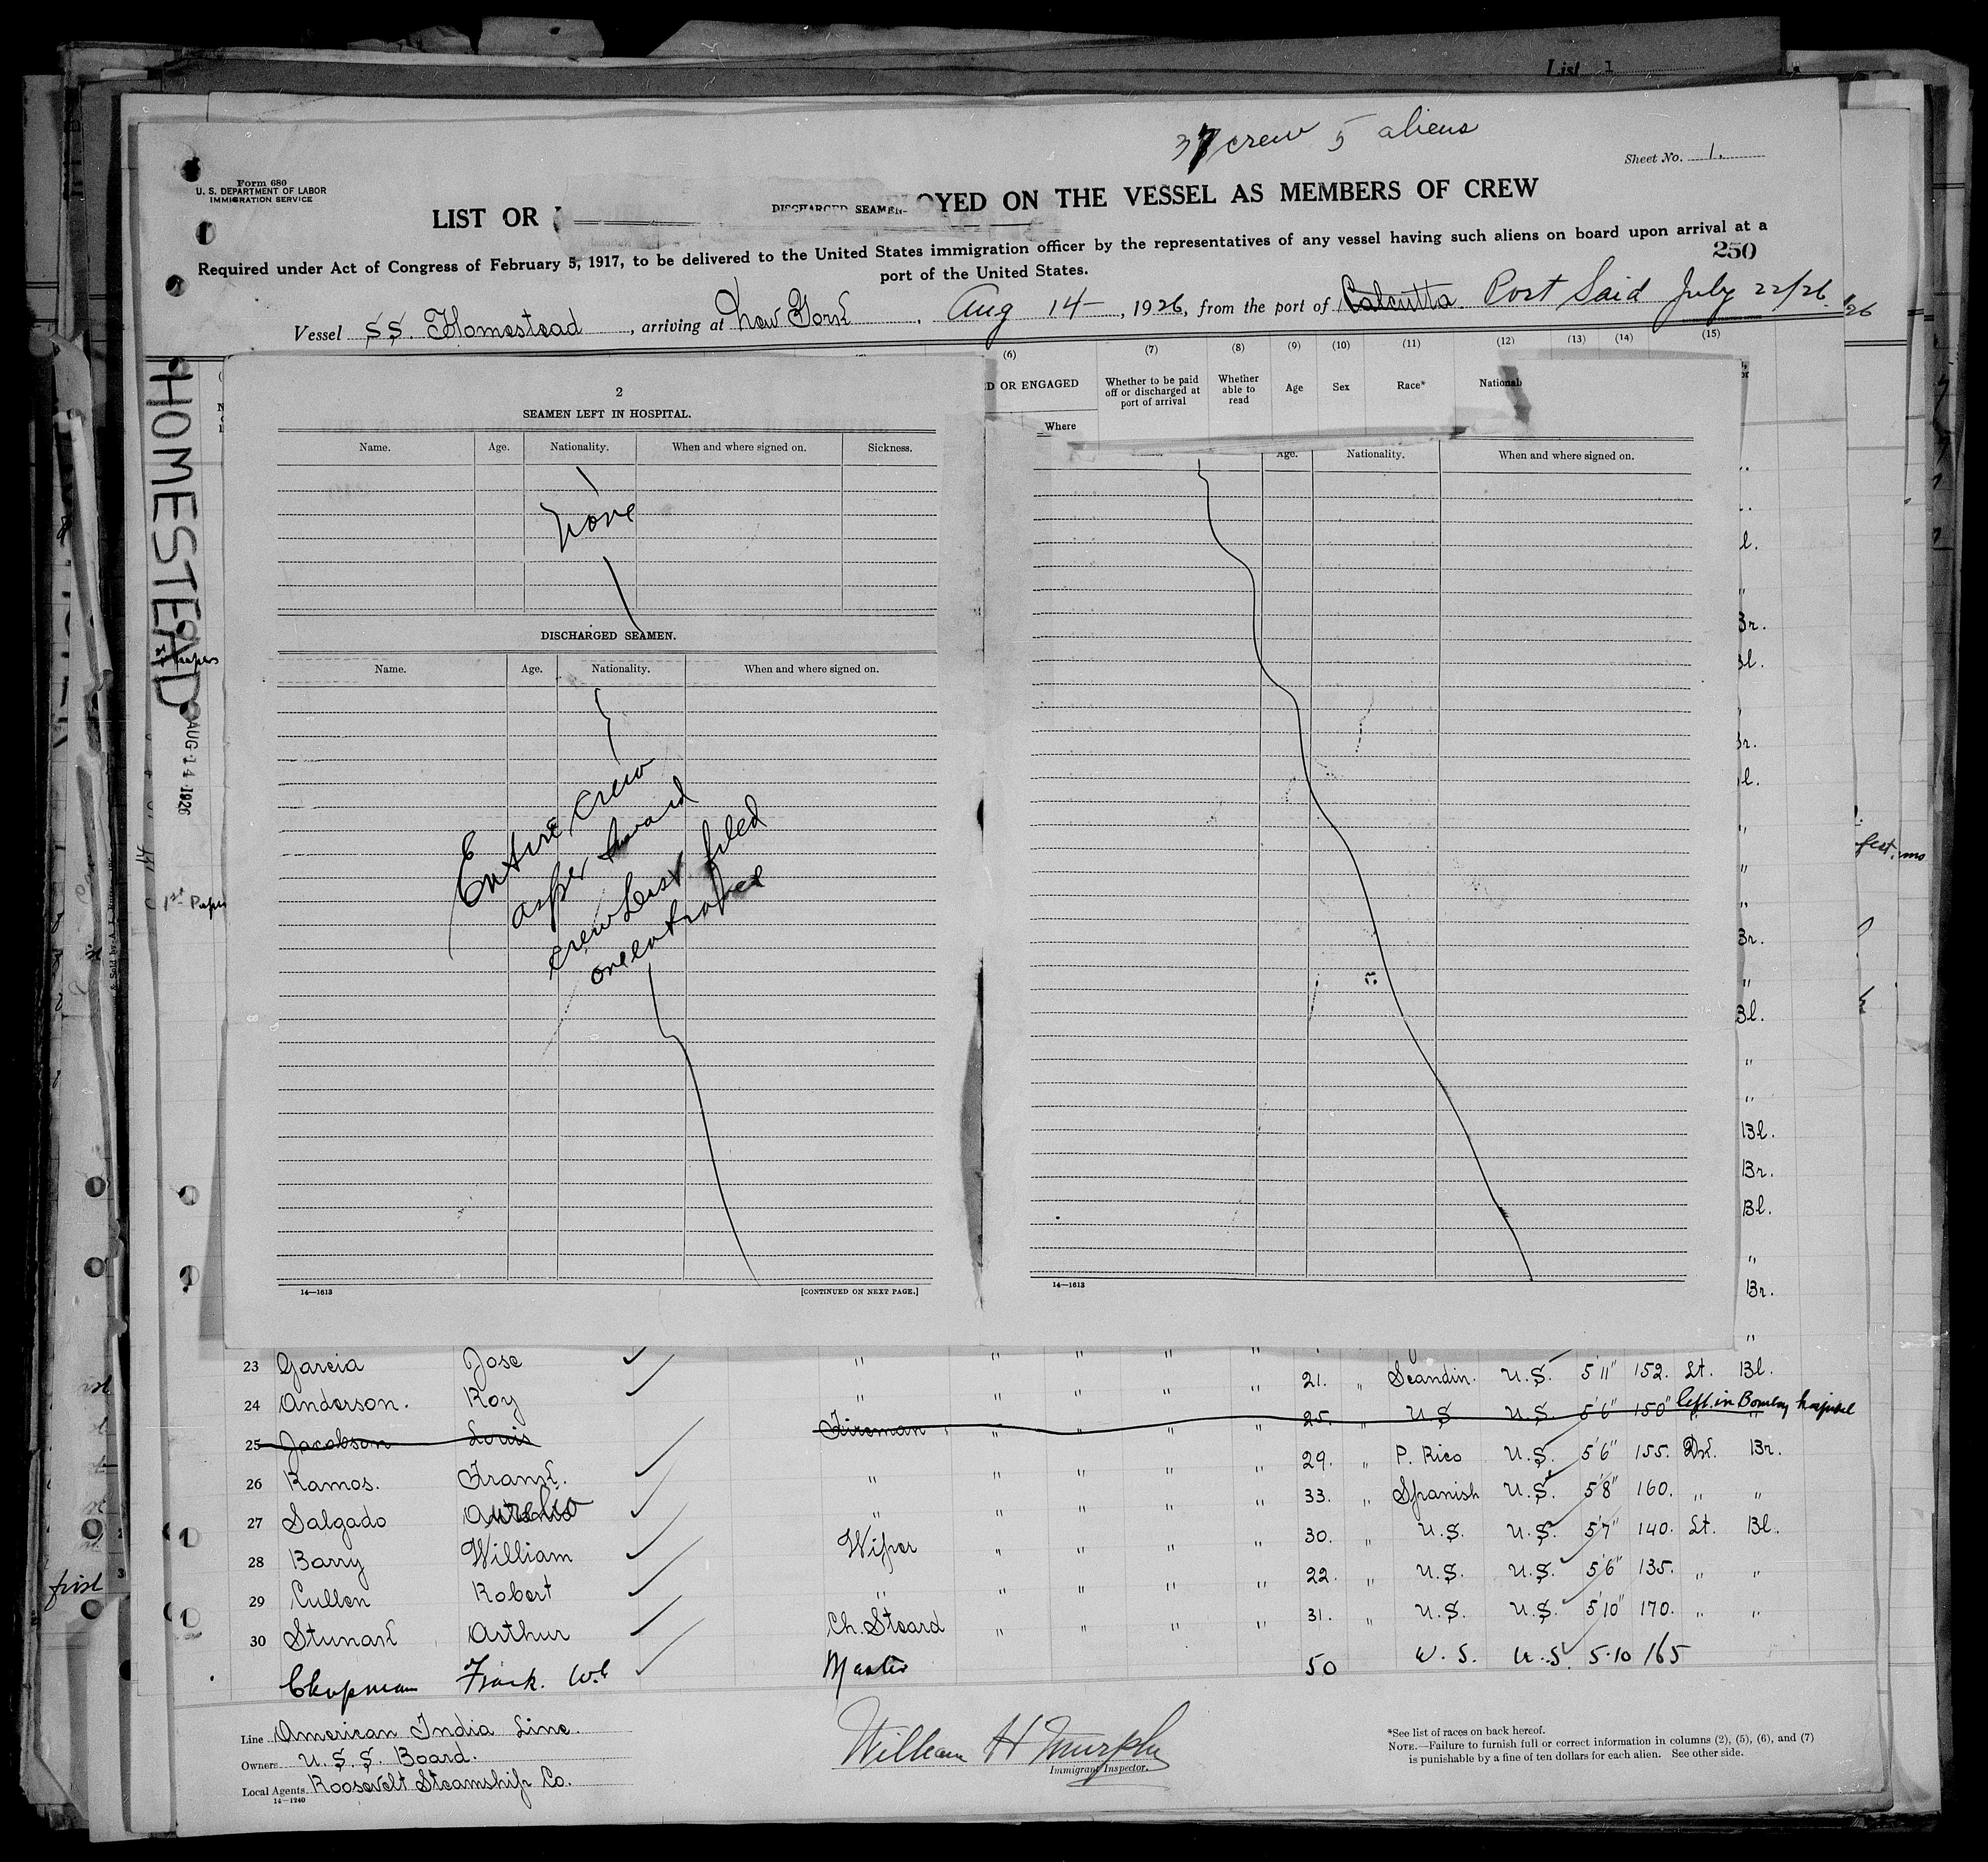 List 1
37 crew 5 aliens
Sheet No. 1.
Form 680
U. S. DEPARTMENT OF LABOR
IMMIGRATION SERVICE
LIST OR
DISCHARGED SEAMEN-
OYED ON THE VESSEL AS MEMBERS OF CREW
Required under Act of Congress of February 5, 1917, to be delivered to the United States immigration officer by the representatives of any vessel having such aliens on board upon arrival at a
port of the United States.
250
Vessel SS. Homestead, arriving at New York, Aug 14, 1926, from the port of Calcutta Port Said July 22/26.
HOMESTEAD
AUG 14 1926
papers
1st Paper
(6) (7) (8) (9) (10) (11) (12) (13) (14) (15)
D OR ENGAGED
Where
Whether to be paid off or discharged at port of arrival
Whether able to read
Age
Sex
Race*
National
2
SEAMEN LEFT IN HOSPITAL.
Name. Age. Nationality. When and where signed on. Sickness.
None
DISCHARGED SEAMEN.
Name. Age. Nationality. When and where signed on.
Entire crew
as per
crew List filed
14—1613
[CONTINUED ON NEXT PAGE.]
Age. Nationality. When and where signed on.
14—1613
l.
"
Br.
Bl.
"
Br.
l.
"
"
"
Br.
"
Bl.
"
"
Bl.
Br.
Bl.
"
Br.
"
23 Garcia Jose " " " " "
24 Anderson. Roy " " " " " 21. " Scandin. U.S. 5'11" 152. Lt. Bl.
25 Jacobson Louis Fireman " " " " 25. " U.S U.S. 5'6" 150 " left in Bombay hospital
26 Ramos. Frank. " " " " " 29. " P. Rico U.S. 5'6" 155. Dk. Br.
27 Salgado Aurelio " " " " " 33. " Spanish U.S. 5'8" 160. " "
28 Barry William Wiper " " " " 30. " U.S. U.S. 5'7" 140. Lt. Bl.
29 Cullen Robert " " " " " 22. " U.S. U.S. 5'6" 135. " "
30 Stunak Arthur Ch. Steard " " " " 31. " U.S. U.S. 5'10" 170. " "
Chapman Frank. Master 50 U.S. U.S. 5-10 165
Line American India Line.
Owners U.S.S. Board.
Local Agents Roosevelt Steamship Co.
14—1240
William H Murphy
Immigrant Inspector.
*See list of races on back hereof.
NOTE.—Failure to furnish full or correct information in columns (2), (5), (6), and (7)
is punishable by a fine of ten dollars for each alien. See other side.
first